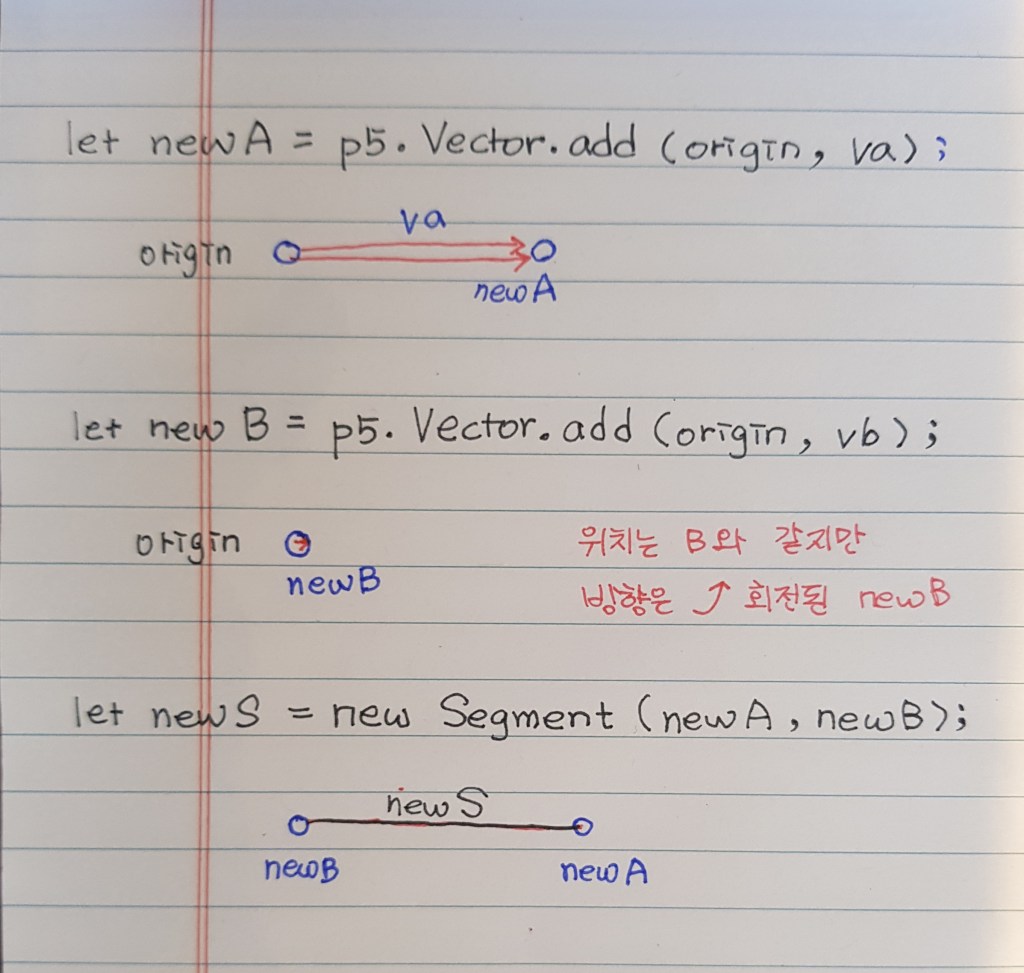 let newA = p5.Vector.add (origin, va);
va
origin
newA
let newB = p5.Vector.add (origin, vb);
origin
newB
위치는 B와 같지만
방향은 ↗ 회전된 newB
let newS = new Segment (newA, newB);
newS
newB
newA